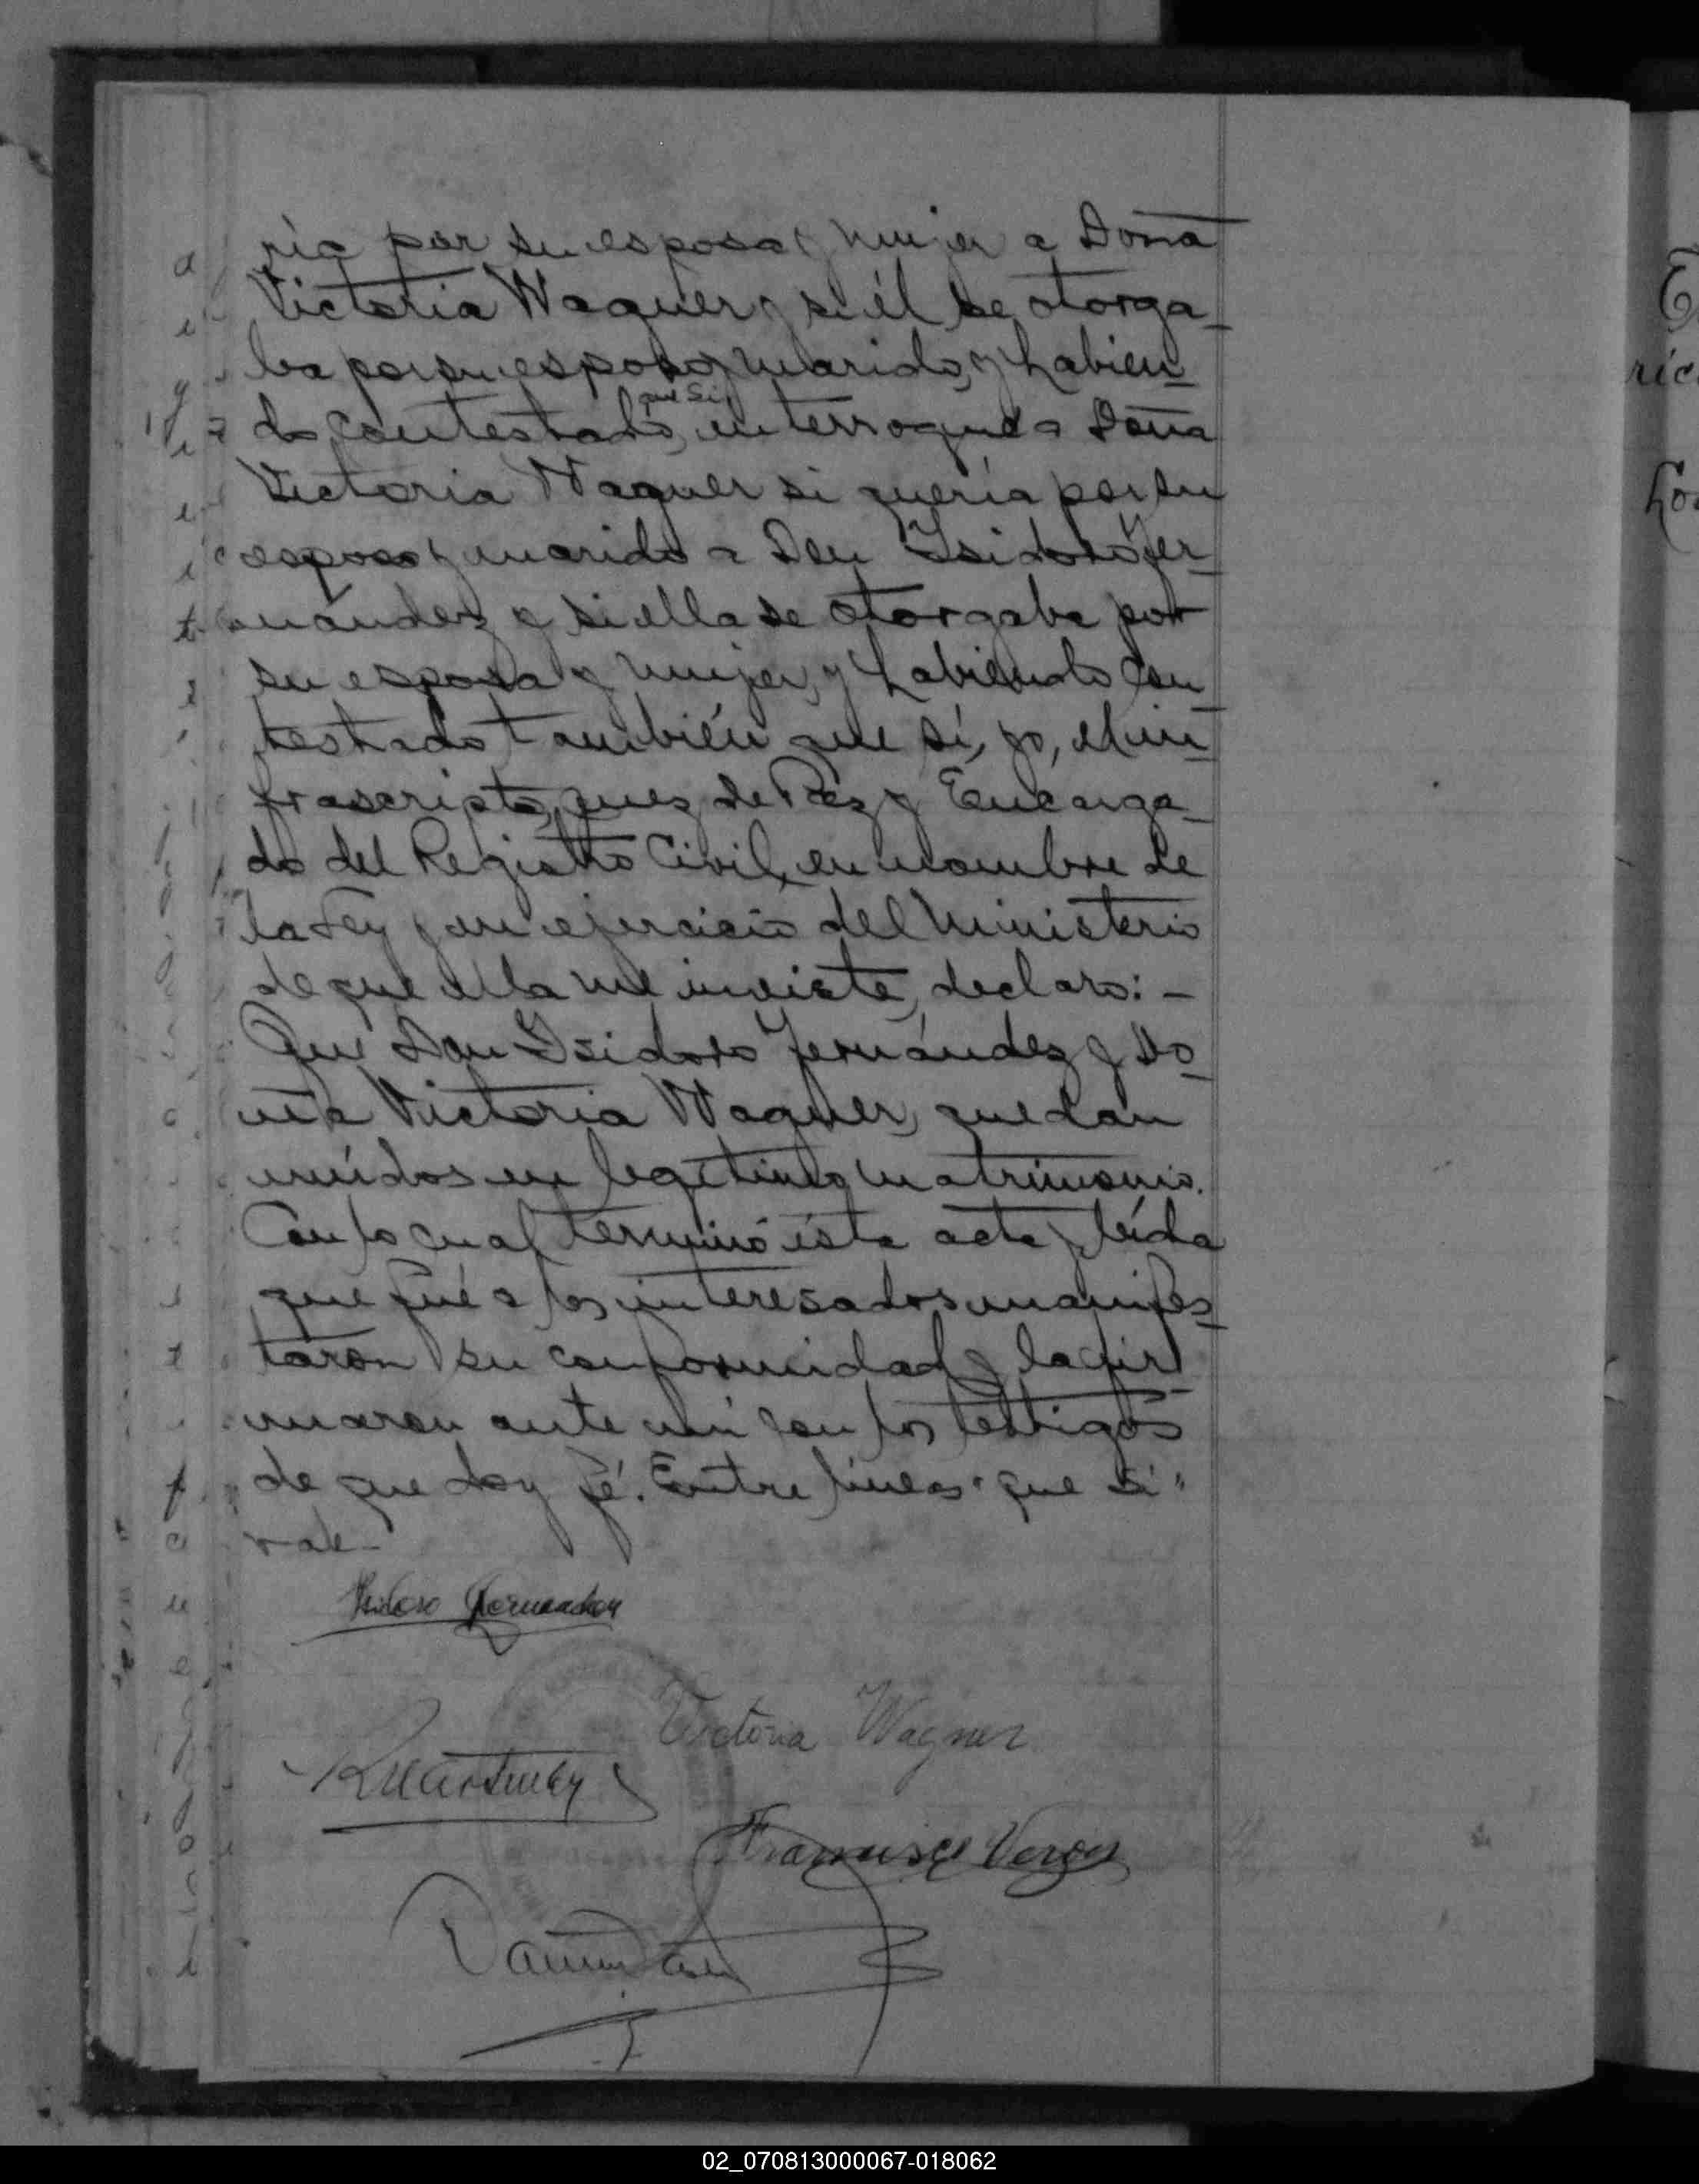 ría por su esposa y mujer a Doña
Victoria Wagner y si él se otorga-
ba por su esposo y marido, y habien-
do contestado que si, interrogué a Doña
Victoria Wagner si quería por su
esposo y marido a Don Isidoro Fer-
nández y si ella se otorgaba por
su esposa y mujer, y habiendo con-
testado también que sí, yo, el in-
frascripto, Juez de Paz y Encarga-
do del Registro Civil, en nombre de
la Ley y en ejercicio del Ministerio
de que ella me inviste, declaro: -
Que Don Isidoro Fernández y Do-
ña Victoria Wagner, quedan
unidos en legítimo matrimonio.
Con lo cual terminó ésta acta y leída
que fué a los interesados manifes-
taron su conformidad y la fir-
maron ante mí con los testigos
de que doy fé. Entre líneas "que si"
vale-
Isidoro Fernandez
Victoria Wagner
Francisco
02_070813000067-018062